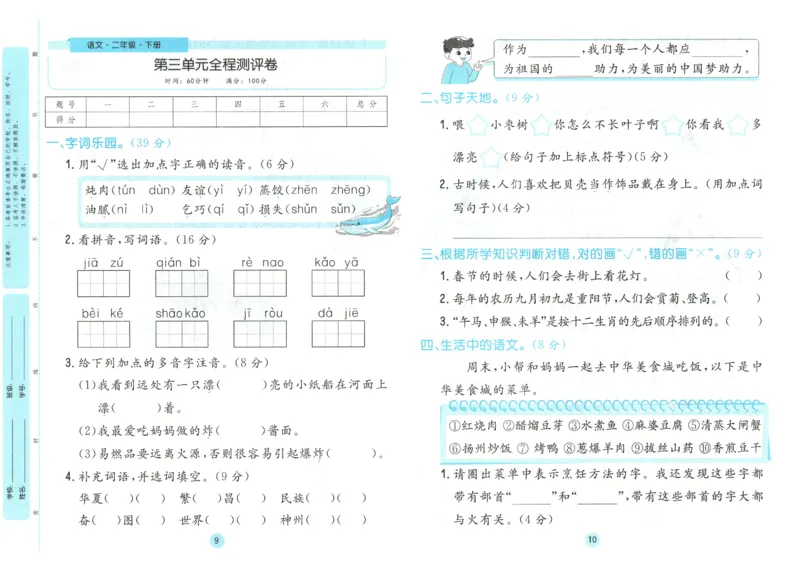 语文·二年级·下册
第三单元全程测评卷
时间:60分钟 满分:100分
题号 一 二 三 四 五 六 总分
得分
一、字词乐园。(39分)
1.用“√”选出加点字正确的读音。(6分)
炖肉(tún dùn) 友谊(yì yí) 蒸饺(zhēn zhēng)
油腻(nì lì) 乞巧(qí qǐ) 损失(shǔn sǔn)
2.看拼音,写词语。(16分)
jiā zú qián bì rè nao kǎo yā
bèi ké shāo kǎo jī ròu dà jiē
3.给下列加点的多音字注音。(8分)
(1)我看到远处有一只漂( )亮的小纸船在河面上
漂( )着。
(2)我最爱吃妈妈做的炸( )酱面。
(3)易燃品要远离火源,否则很容易引起爆炸( )。
4.补充词语,并选词填空。(9分)
华夏( )( ) 繁( )昌( ) 民族( )( )
奋( )图( ) 世界( )( ) 神州( )( )
9
作为________,我们每一个人都应________,
为祖国的______助力,为美丽的中国梦助力。
二、句子天地。(9分)
1.喂 小枣树 你怎么不长叶子啊 你看我 多
漂亮 (给句子加上标点符号)(5分)
2.古时候,人们喜欢把贝壳当作饰品戴在身上。(用加点词
写句子)(4分)
三、根据所学知识判断对错,对的画“√”,错的画“×”。(9分)
1.春节的时候,人们会去街上看花灯。 ( )
2.每年的农历九月初九是重阳节,人们会赏菊、登高。( )
3.“午马、申猴、未羊”是按十二生肖的先后顺序排列的。( )
四、生活中的语文。(8分)
周末,小帮和妈妈一起去中华美食城吃饭,以下是中
华美食城的菜单。
①红烧肉 ②醋熘豆芽 ③水煮鱼 ④麻婆豆腐 ⑤清蒸大闸蟹
⑥扬州炒饭 ⑦ 烤鸭 ⑧葱爆羊肉 ⑨拔丝山药 ⑩香煎豆干
1.请圈出菜单中表示烹饪方法的字。我还发现这些字都
带有部首“______”和“______”,带有这些部首的字大都
与火有关。(4分)
10
学校:
班级:
姓名:
学号:
注意事项: